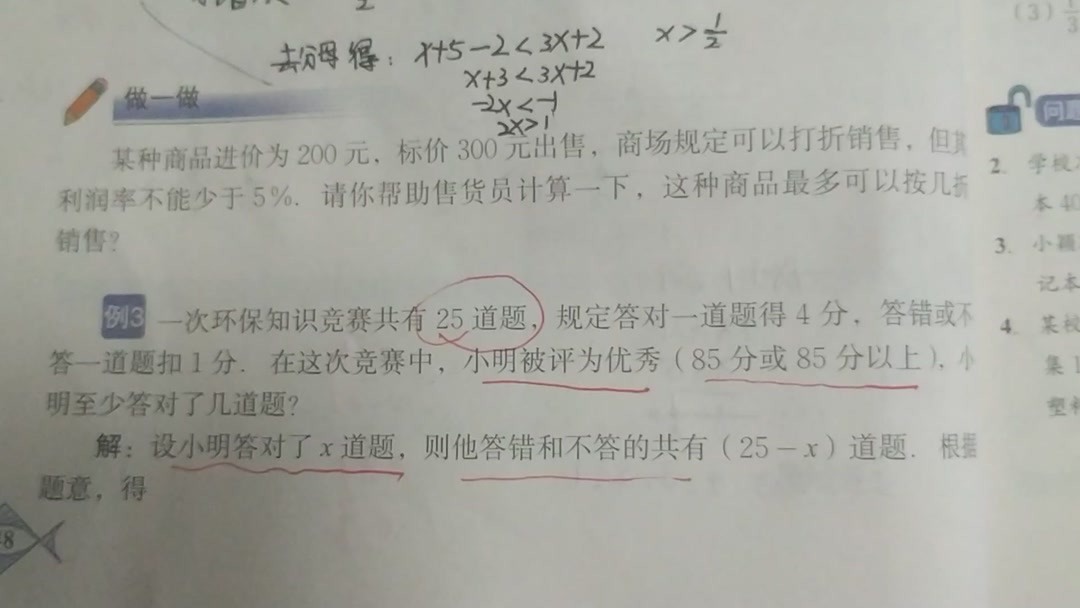 去分母得：x+5-2<3x+2 x>1/2
x+3<3x+2
-2x<-1
2x>1
做一做
某种商品进价为200元，标价300元出售，商场规定可以打折销售，但其
利润率不能少于5%．请你帮助售货员计算一下，这种商品最多可以按几折
销售？
例3 一次环保知识竞赛共有25道题，规定答对一道题得4分，答错或不
答一道题扣1分．在这次竞赛中，小明被评为优秀（85分或85分以上），小
明至少答对了几道题？
解：设小明答对了x道题，则他答错和不答的共有（25-x）道题．根据
题意，得
8
(3) 1/3
问题
2. 学校
本40
3. 小颖
记本
4. 某校
集1
塑料